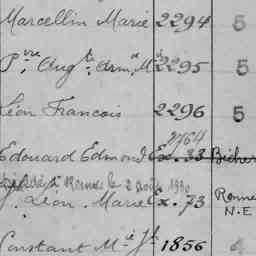 Marcellin Marie 2294 5
Pʳʳᵉ Augᵗᵉ Armᵈ Mᵈ 2295 5
Léon François 2296 5
2764
Edouard Edmond Ex. 33 Bicher
Rennes le 2 août 1920
J. Léon. Marie Ex. 73 Rennes
N.E
Constant Mⁱᵉ Jʰ 1856 4